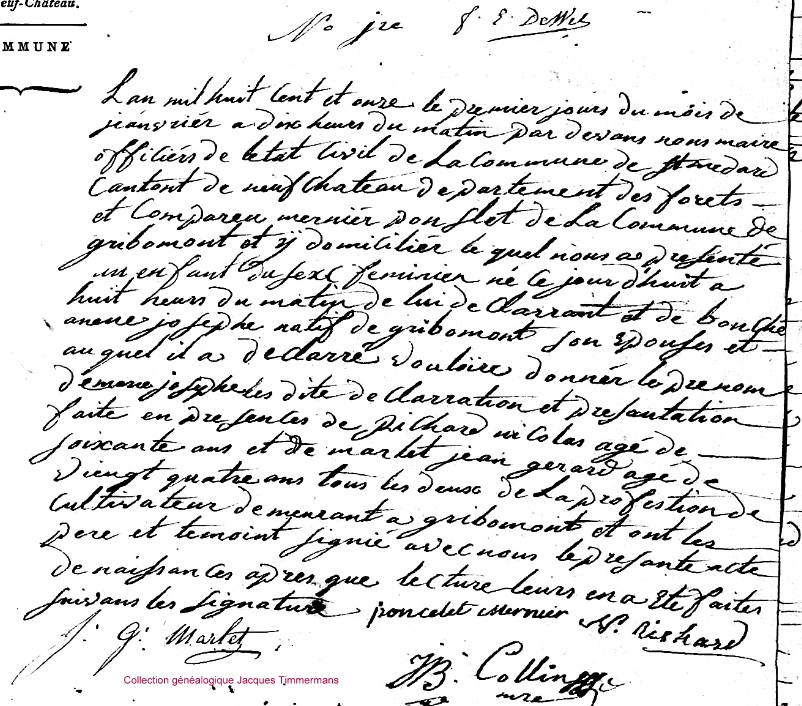 euf-Château.
MMUNE
No 1re f. E. DeWez
Lan mil huit Cent et onze le premier jours du mois de
jeanvriér a dix heurs du matin par devans nous maire
officiérs de letat Civil de La Commune de St medard
Cantont de neufchateau departement des forets
et Compareu merniér ponslet de La Commune de
gribomont et ÿ domiciliér le quel nous a presenté
un enfant du sexe feminien né ce jour d'huit a
huit heurs du matin de lui declarrant et de bonche
aneue josephe natif de gribomont son Epouses et
au quel il a declarré vouloire donnér le prenom
de marie josephe les dite declarration et presantation
faite en presences de pichard nicolas agé de
soixante ans et de marlet jean gerard agé de
viengt quatre ans tous les deux de La profestion de
Cultivateur demeurant a gribomont et ont les
pere et temoint signié avec nous le presante acte
de naissances apres que lecture leurs en a Eté faites
suivans les signature poncelet mernier N. Richard
J. G. Marlet
JB. Collin
mre
Collection généalogique Jacques Timmermans